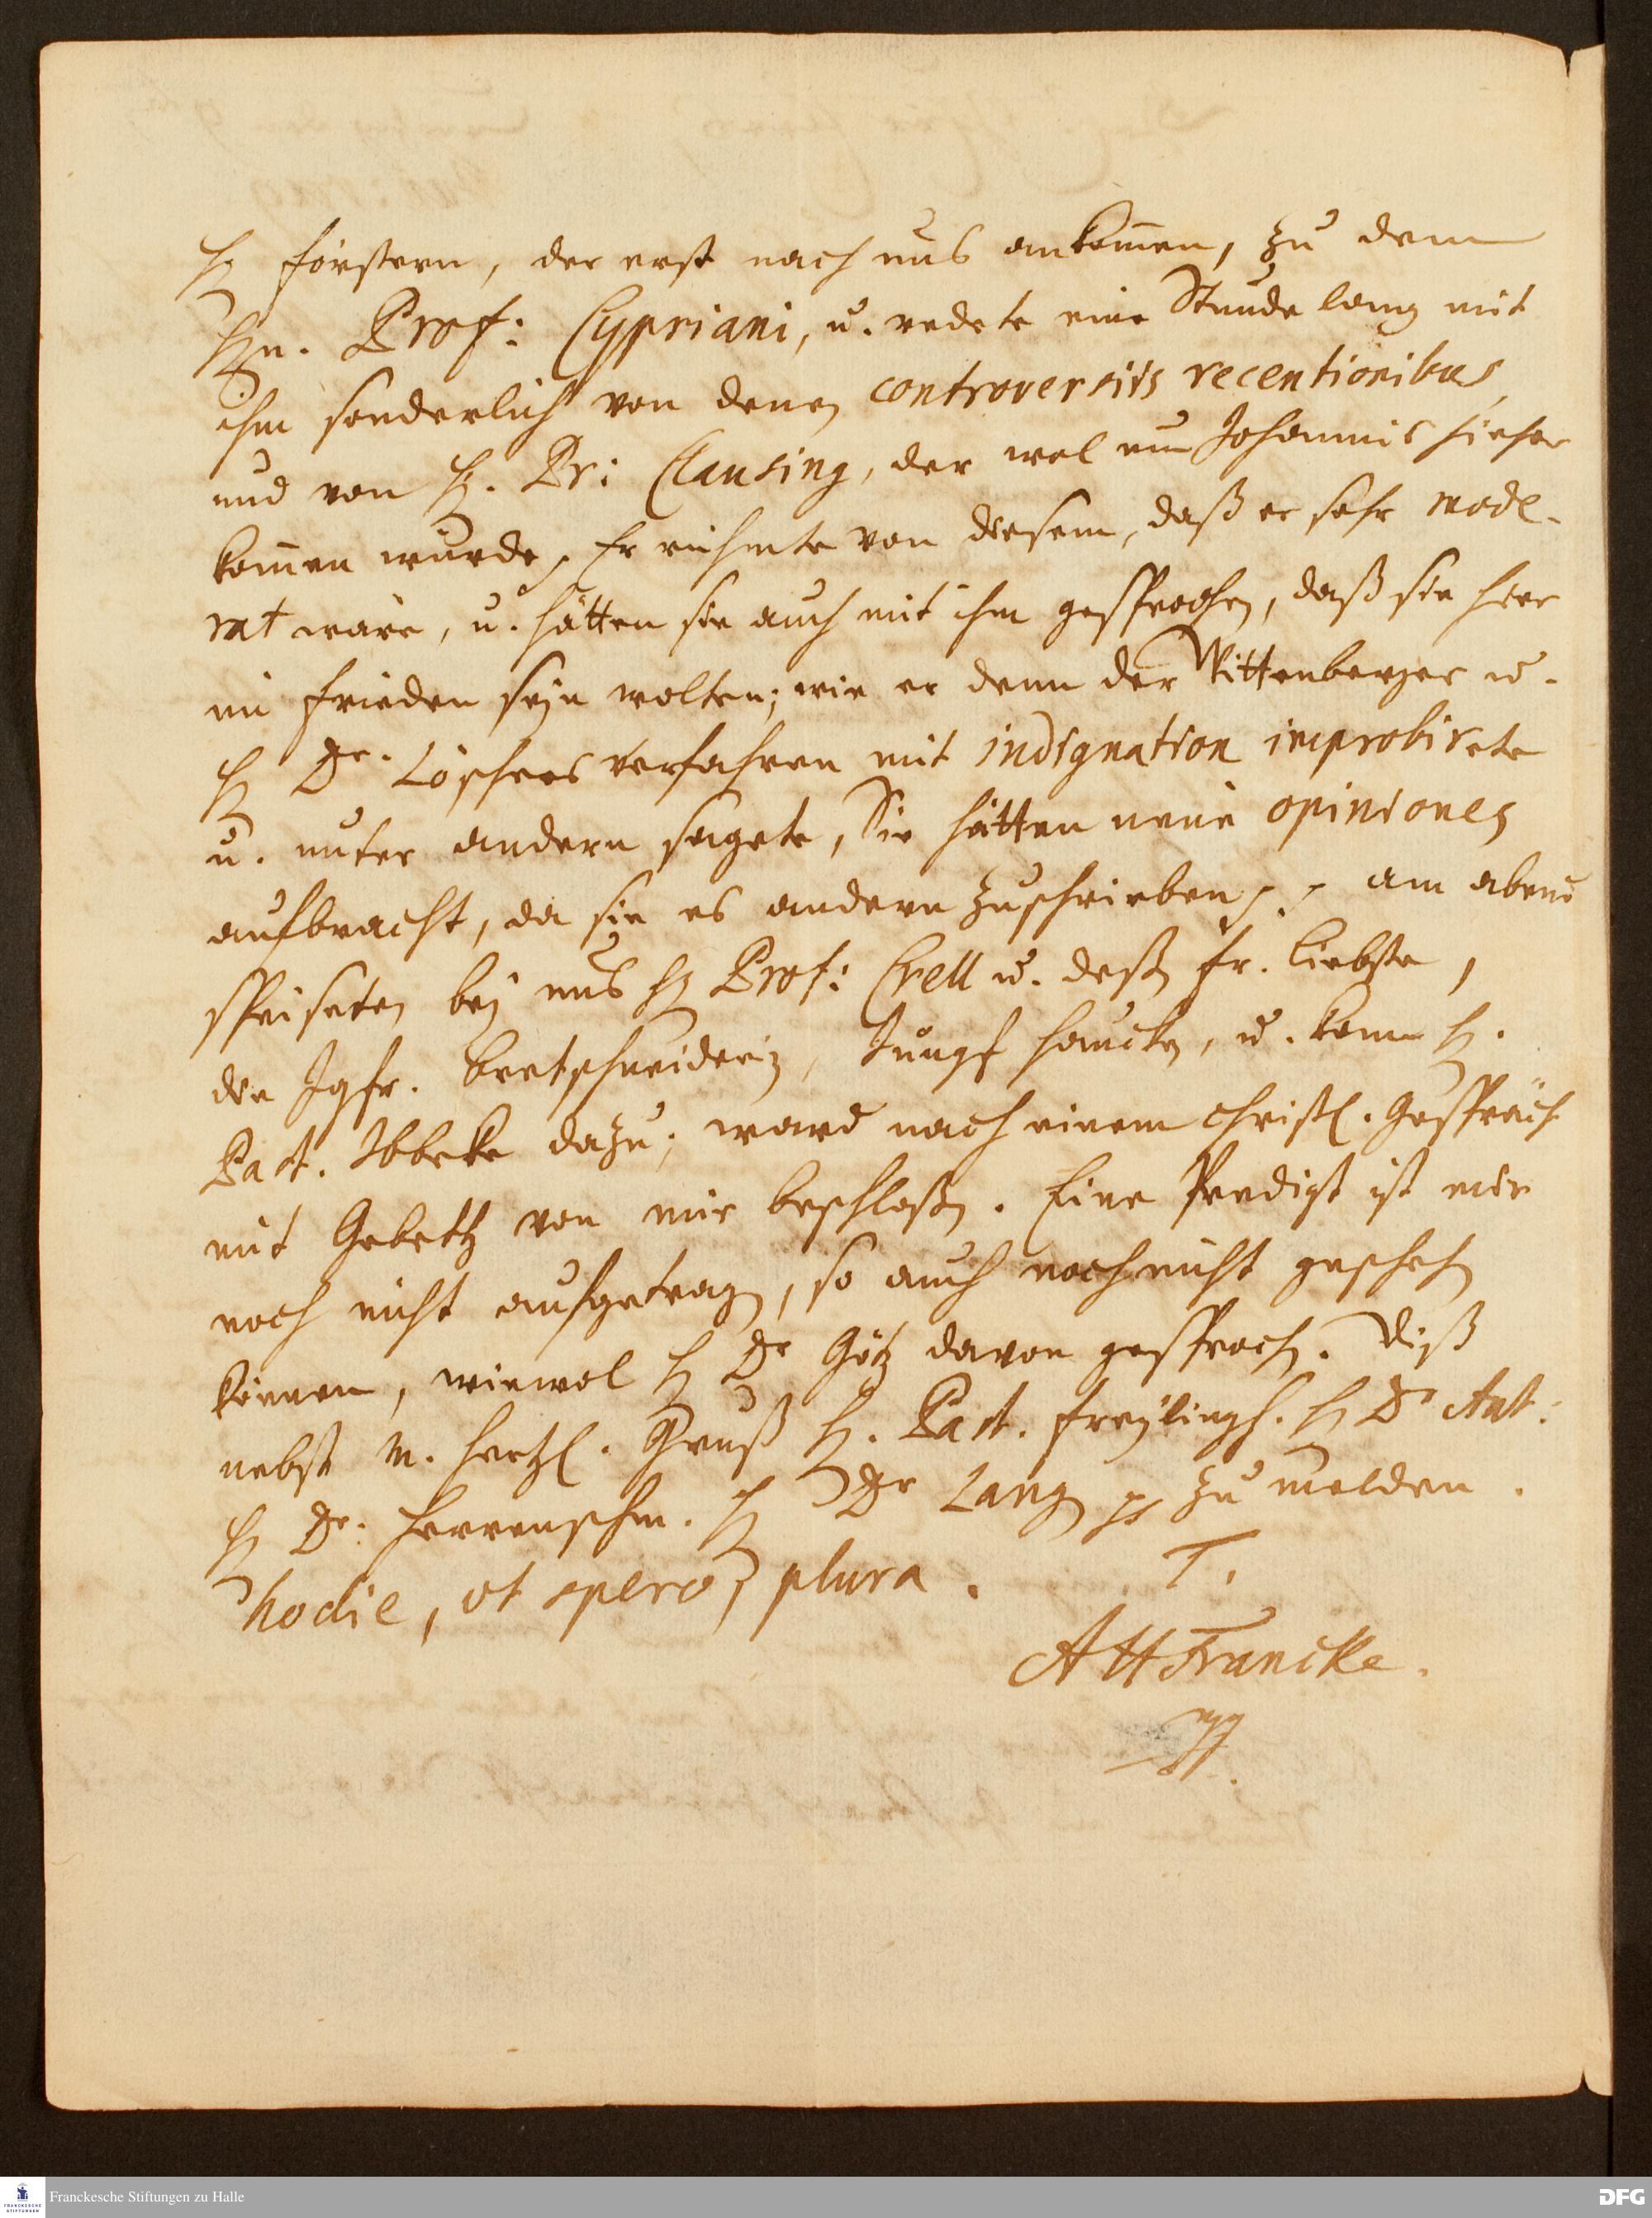 H. Förstern, der erst nach uns ankom̄en, zu dem
Hn. Prof: Cypriani, u. redete eine Stunde lang mit
ihm sonderlich von denen controversiis recentioribus,
und von H. Dr: Clausing, der wol um Johannis hieher
kom̄en würde, Er rühmte von diesem, daß er sehr mode-
rat wäre, u. hätten sie auch mit ihm gesprochen, daß sie hier
in frieden seyn wolten; wie er denn der Wittenberger u.
H Dr. Löschers verfahren mit indignation improbirete
u. unter andern sagete, Sie hätten neue opiniones
aufbracht, da sie es andern zuschrieben, am abend
speiseten bey uns H Prof: Crell u. deßen fr. Liebste,
die Jgfr. Bretschneiderin, Jungf Haucken, u. kam H.
Past. Ibbeke dazu; ward nach einem christl. Gespräch
mit Gebeth von mir beschloßen. Eine Predigt ist mir
noch nicht aufgetragen, so auch noch nicht geschehen
können, wiewol H Dr Götz davon gesprochen. Diß
nebst m. hertzl. Gruß H. Past. freylingh. H Dr Ant:
H Dr. Herrenschm. H Dr Lang pp zu melden.
hodie, ut spero, plura. T.
AHFrancke.
Franckesche Stiftungen zu Halle
DFG